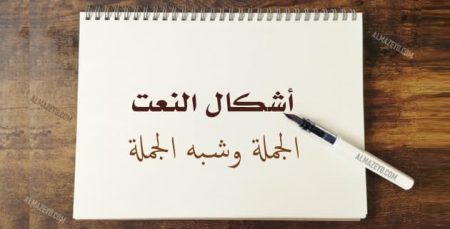 أشكال النعت
الجملة وشبه الجملة
ALMAZEYD.COM
ALMAZEYD.COM
ALMAZEYD.COM